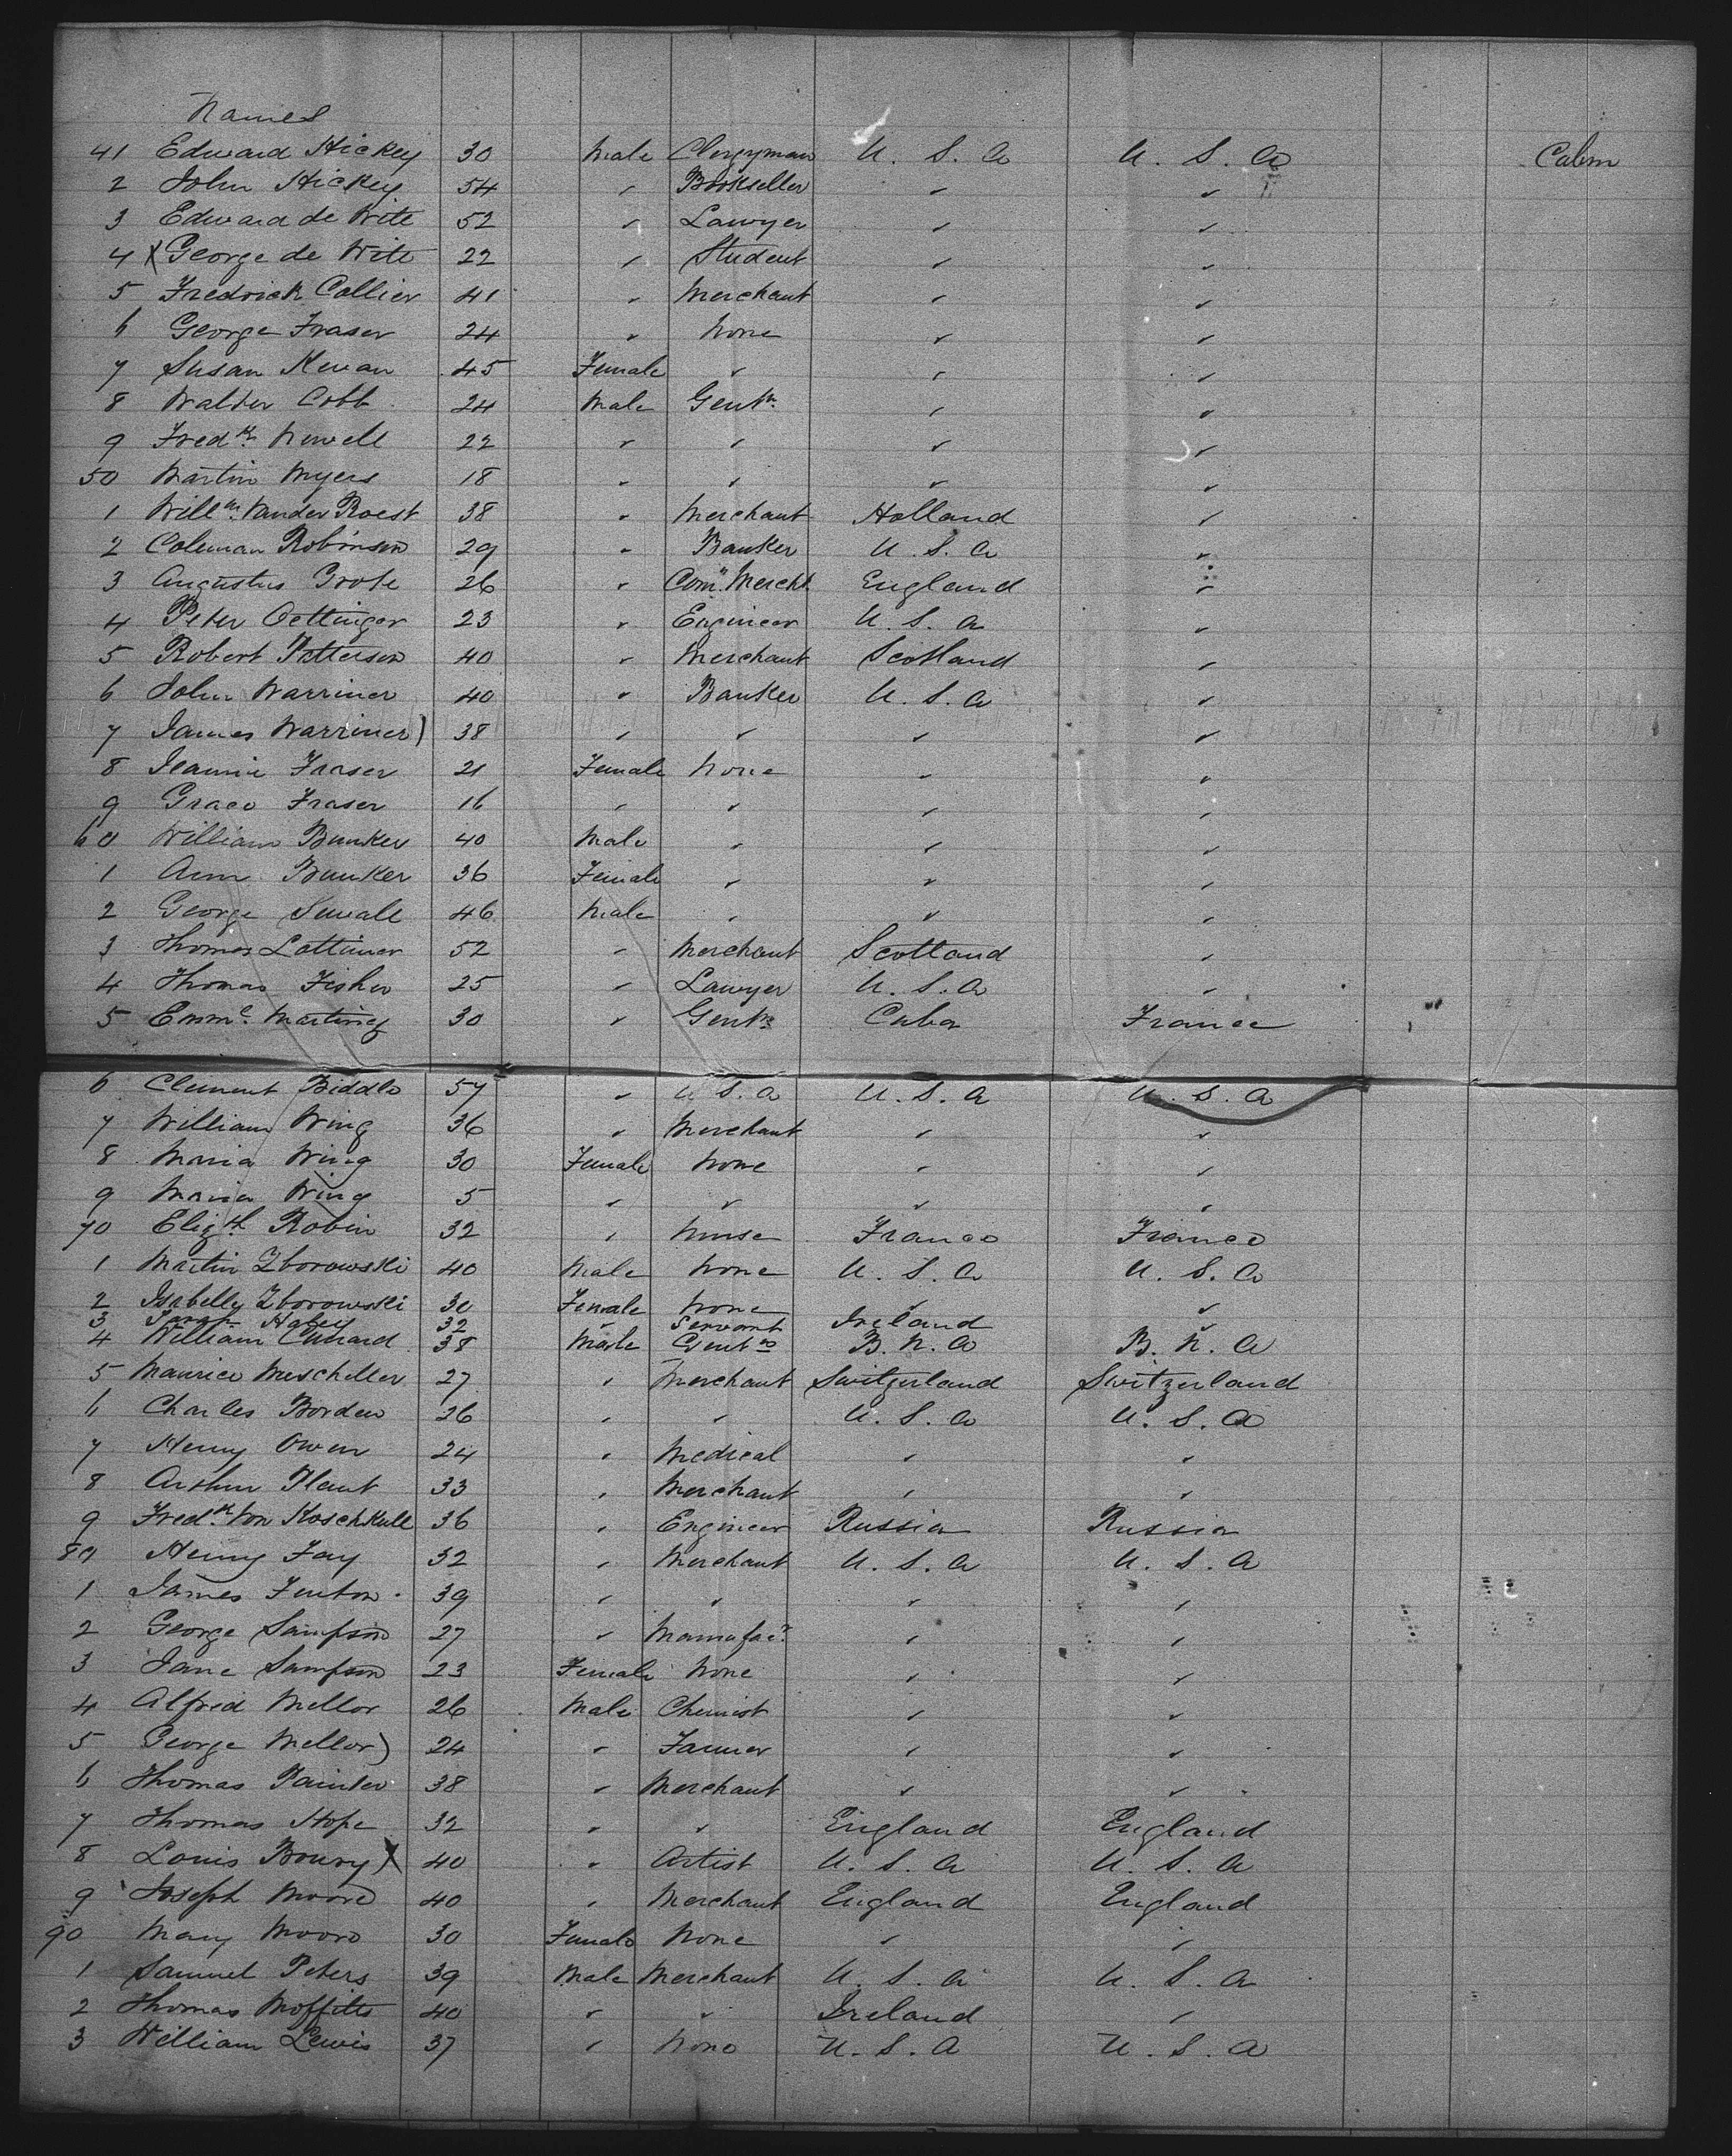 Names
41 Edward Hickey 30 Male Clergyman U. S. A U. S. A Cabin
2 John Hickey 54 " Bookseller " "
3 Edward de Witt 52 " Lawyer " "
4 X George de Witt 22 " Student " "
5 Fredrick Collier 41 " Merchant " "
6 George Fraser 24 " None " "
7 Susan 45 Female " " "
8 Walter Cobb 24 Male Gentn. " "
9 Fredk. Newell 22 " " " "
50 Martin Myers 18 " " " "
1 Willm. Vander Roest 38 " Merchant Holland "
2 Coleman Robinson 29 " Banker U. S. A "
3 Augustus Grote 26 " Comn. Mercht. England "
4 Peter Oettinger 23 " Engineer U. S. A "
5 Robert Patterson 40 " Merchant Scotland "
6 John Warriner 40 " Banker U. S. A "
7 James Warriner) 38 " " " "
8 Jeannie Fraser 21 Female None " "
9 Grace Fraser 16 " " " "
60 William Bunker 40 Male " " "
1 Ann Bunker 36 Female " " "
2 George Sewall 46 Male " " "
3 Thomas Lattimer 52 " Merchant Scotland "
4 Thomas Fisher 25 " Lawyer U. S. A "
5 Emml. Martinez 30 " Gentn. Cuba France
6 Clement Biddle 57 " U. S. A U. S. A U. S. A
7 William Wing 36 " Merchant " "
8 Maria Wing 30 Female None " "
9 Maria Wing 5 " " " "
70 Elizth Robin 32 " Nurse France France
1 Martin Zborowski 40 Male None U. S. A U. S. A
2 Isabella Zborowski 30 Female None " "
3 Sarah Haley 32 " Servant Ireland "
4 William Cunard 38 Male Gentn B. N. A B. N. A
5 Maurice 27 " Merchant Switzerland Switzerland
6 Charles Borden 26 " " U. S. A U. S. A
7 Henry Owen 24 " Medical " "
8 Arthur Plant 33 " Merchant " "
9 Fredk. Von Koschkull 36 " Engineer Russia Russia
80 Henry Fay 32 " Merchant U. S. A U. S. A
1 James Fenton 39 " " " "
2 George Sampson 27 " Manufacr. " "
3 Jane Sampson 23 Female None " "
4 Alfred Mellor 26 Male Chemist " "
5 George Mellor) 24 " Farmer " "
6 Thomas Painter 38 " Merchant " "
7 Thomas Hope 32 " " England England
8 Louis Boury X 40 " Artist U. S. A U. S. A
9 Joseph Moore 40 " Merchant England England
90 Mary Moore 30 Female None " "
1 Samuel Peters 39 Male Merchant U. S. A U. S. A
2 Thomas Moffitts 40 " " Ireland "
3 William Lewis 37 " None U. S. A U. S. A